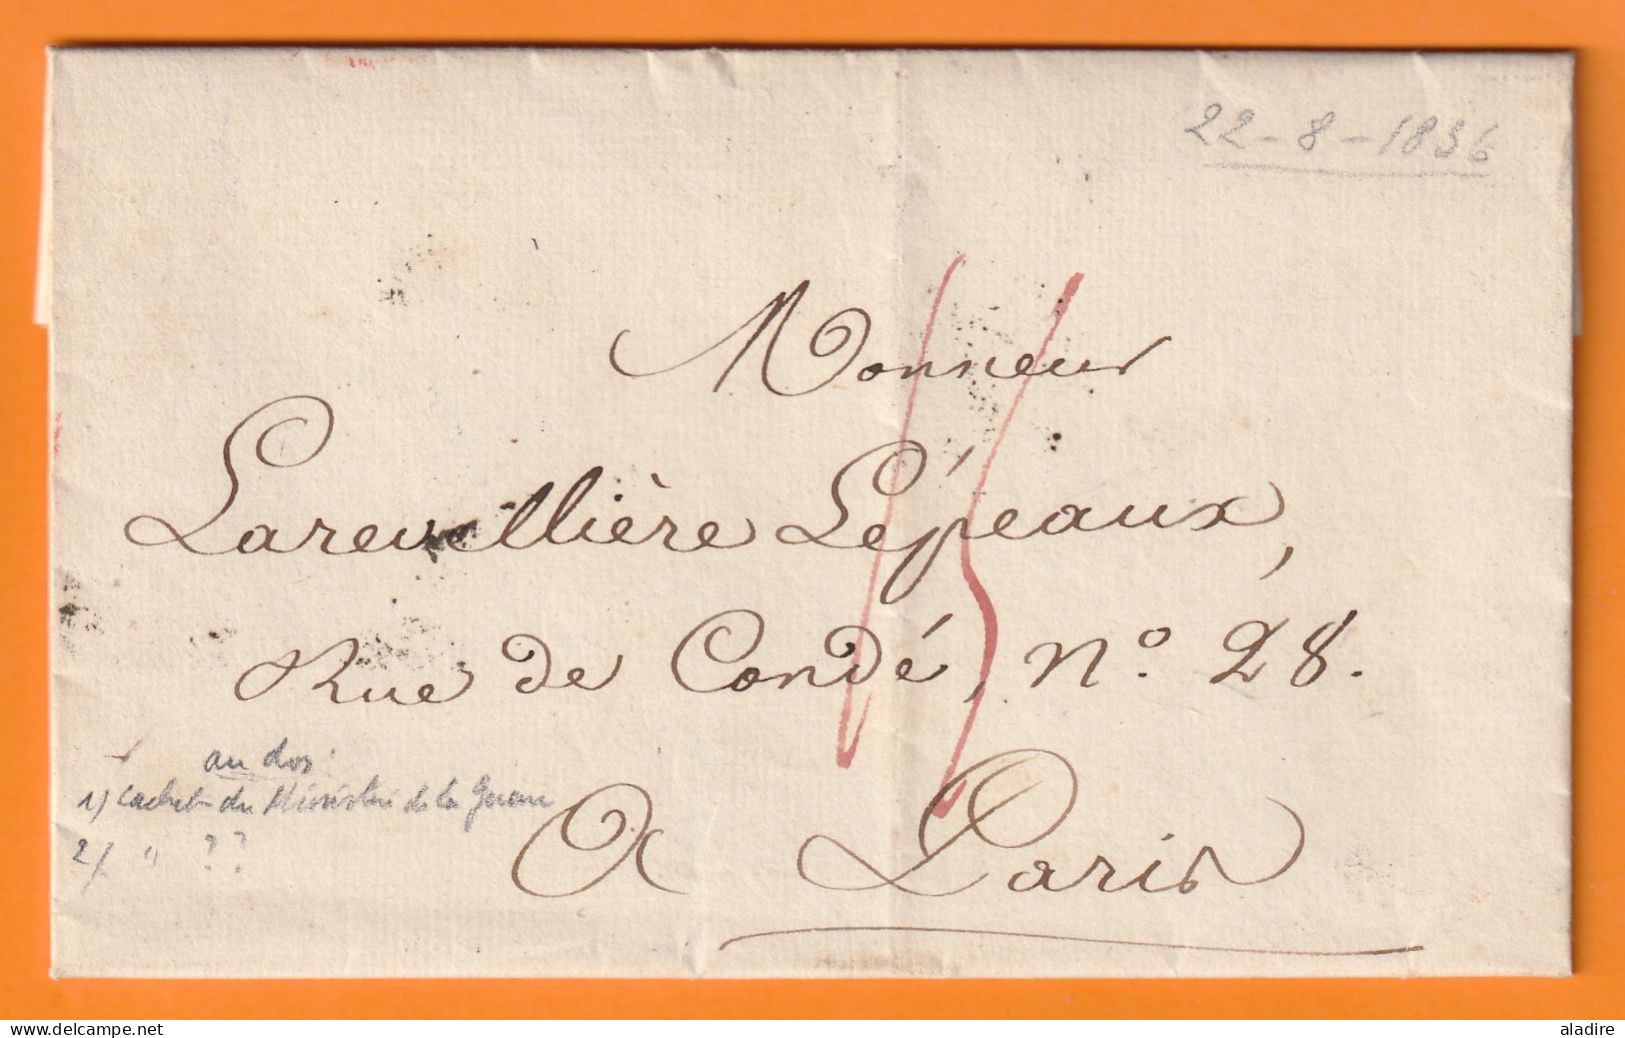 22-8-1836
Monsieur
Larevellière Lépeaux,
Rue de Condé, N.º 28.
A Paris
au dos:
1) Cachet du Ministère de la Guerre
2/ " ??
delcampe.net
aladire